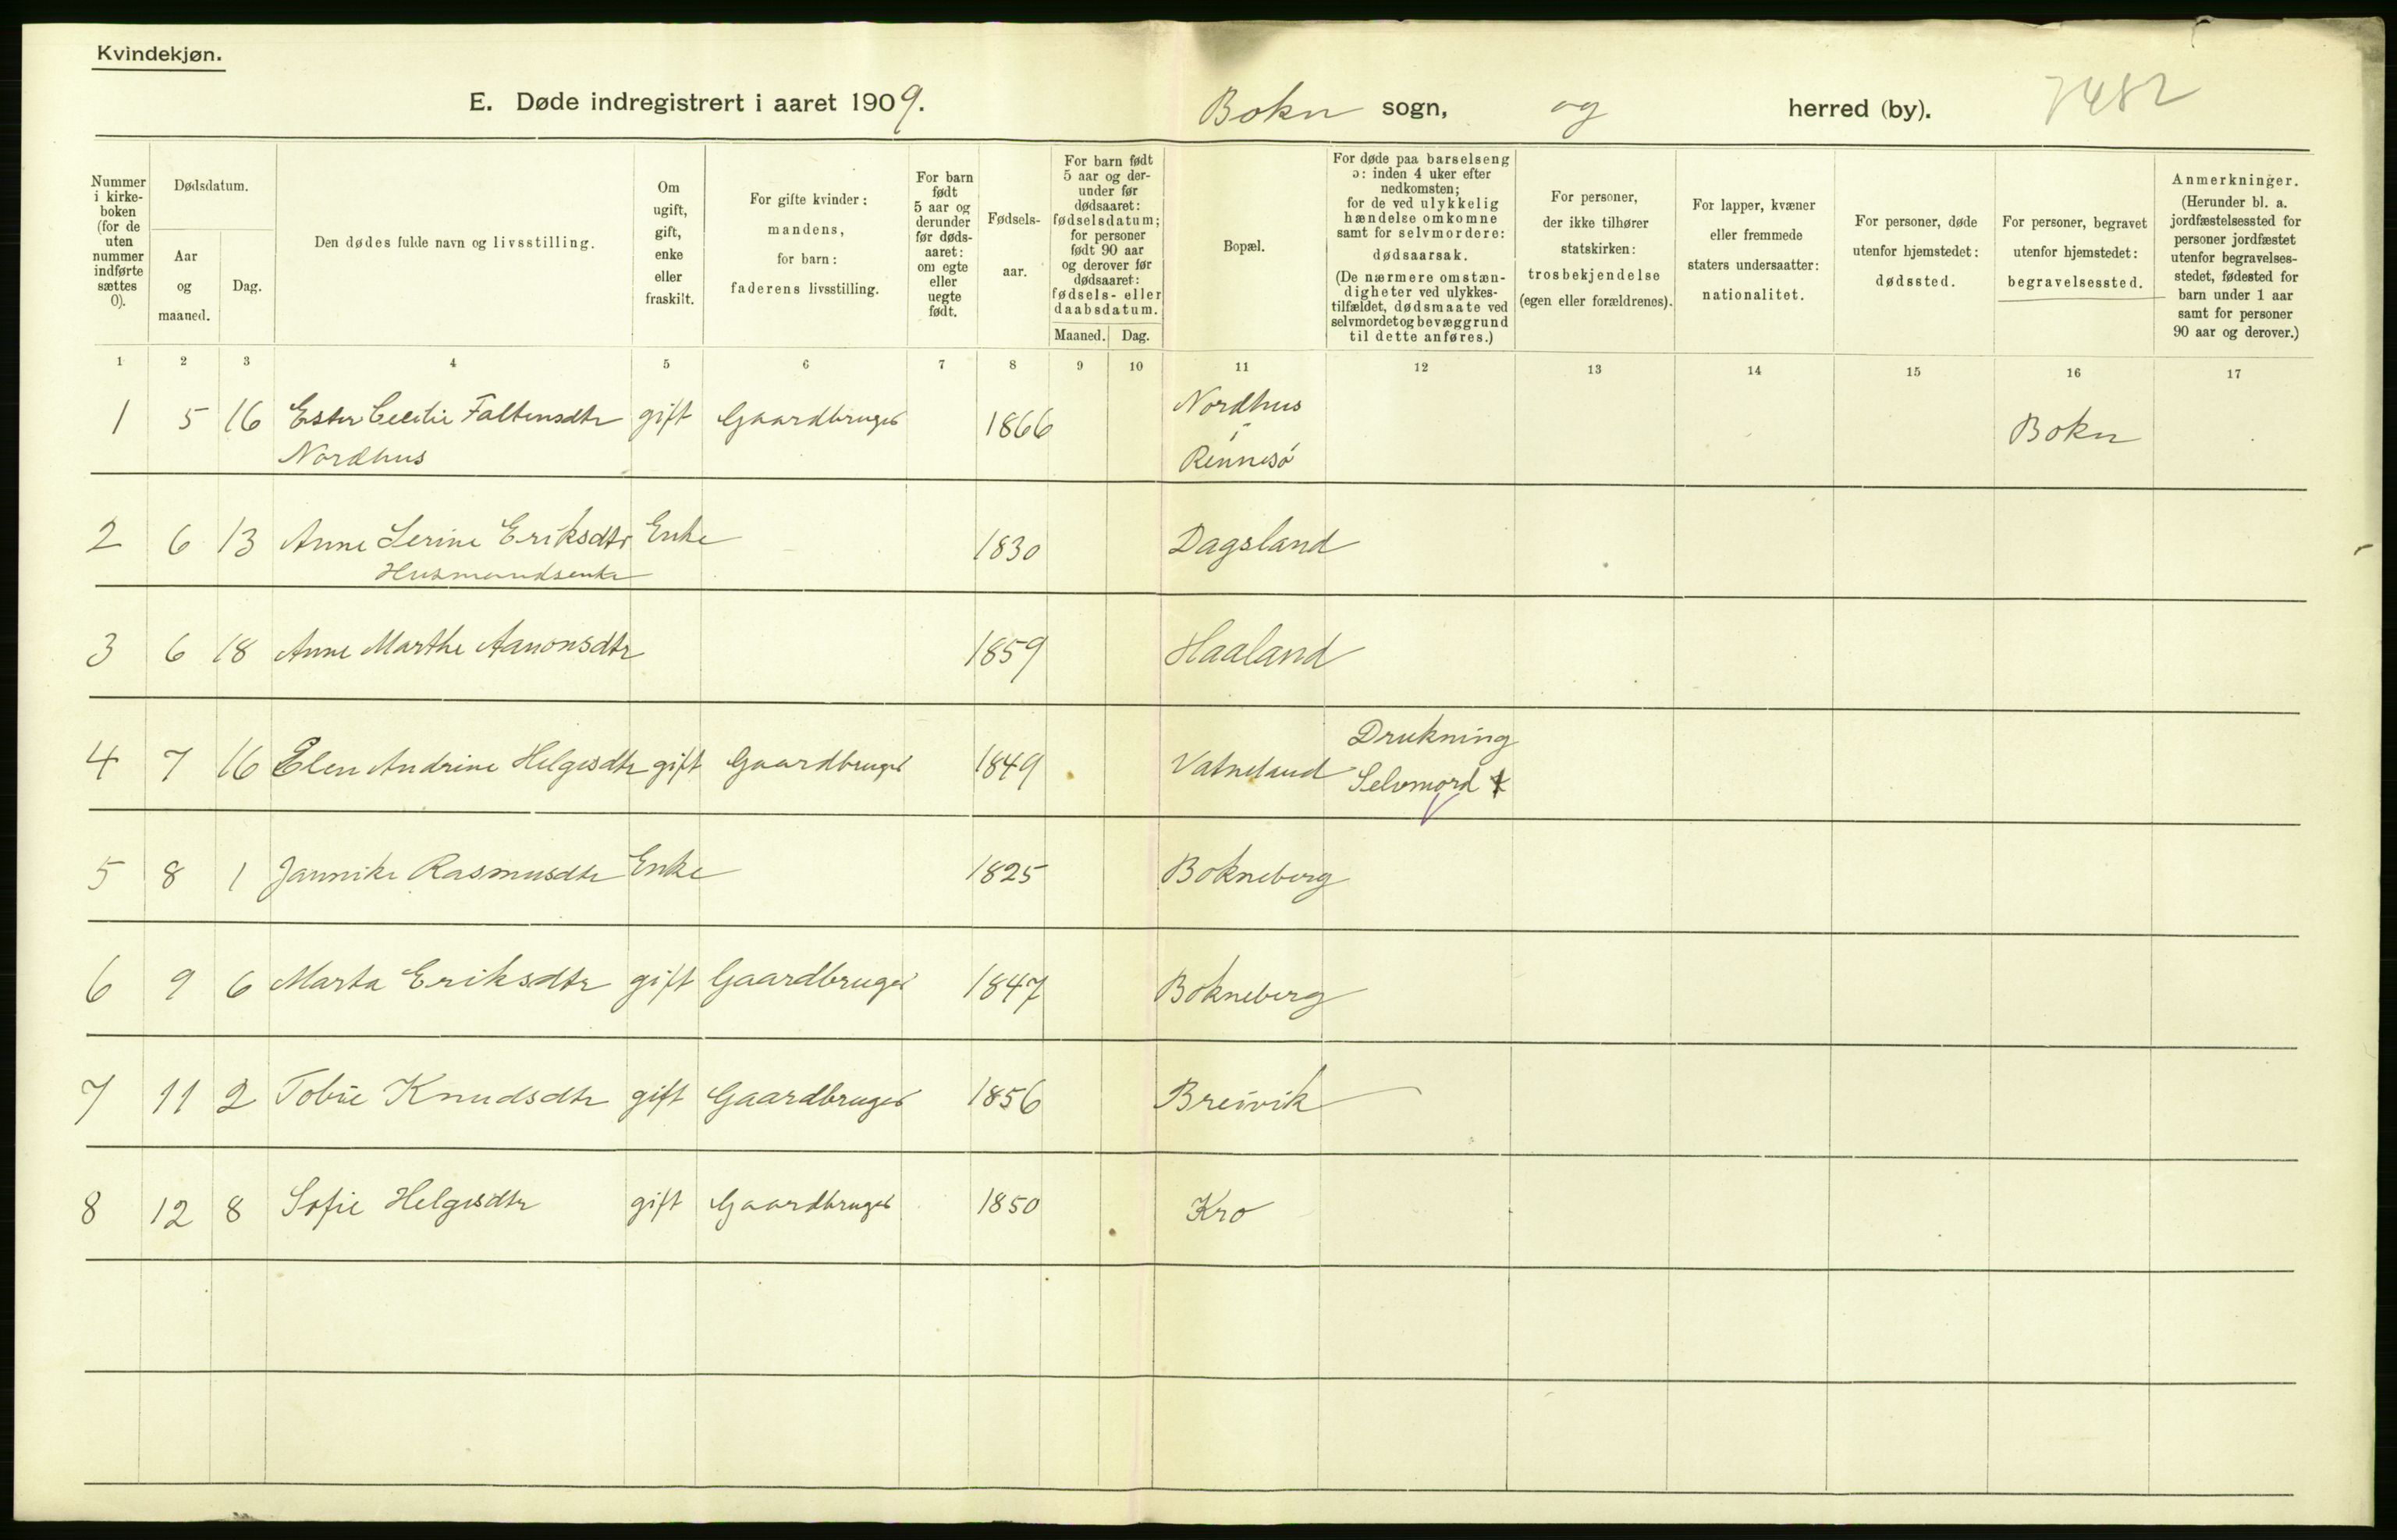 Kvindekjøn.
E. Døde indregistrert i aaret 1909. Bokn sogn, og herred (by). 7482
Nummer i kirke-boken (for de uten nummer indførte sættes 0).
Dødsdatum.
Aar og maaned.
Dag.
Den dødes fulde navn og livsstilling.
Om ugift, gift, enke eller fraskilt.
For gifte kvinder: mandens, for barn: faderens livsstilling.
For barn født 5 aar og derunder før døds-aaret: om egte eller uegte født.
Fødsels-aar.
For barn født 5 aar og der-under før dødsaaret: fødselsdatum; for personer født 90 aar og derover før dødsaaret: fødsels- eller daabsdatum.
Maaned. Dag.
Bopæl.
For døde paa barselseng ɔ: inden 4 uker efter nedkomsten; for de ved ulykkelig hændelse omkomne samt for selvmordere: dødsaarsak. (De nærmere omstæn-digheter ved ulykkes-tilfældet, dødsmaate ved selvmordet og bevæggrund til dette anføres.)
For personer, der ikke tilhører statskirken: trosbekjendelse (egen eller forældrenes).
For lapper, kvæner eller fremmede staters undersaatter: nationalitet.
For personer, døde utenfor hjemstedet: dødssted.
For personer, begravet utenfor hjemstedet: begravelsessted.
Anmerkninger. (Herunder bl. a. jordfæstelsessted for personer jordfæstet utenfor begravelses-stedet, fødested for barn under 1 aar samt for personer 90 aar og derover.)
1 2 3 4 5 6 7 8 9 10 11 12 13 14 15 16 17
1 5 16 Ester Cecilie Faltensdtr gift Gaardbruger 1866 Nordhus Bokn
Nordhus i Rennesö
2 6 13 Anne Serine Eriksdtr Enke 1830 Dagsland
Husmandsenke
3 6 18 Anne Marthe Aanonsdtr 1859 Haaland
Drukning
4 7 16 Elen Andrine Helgesdtr gift Gaardbruger 1849 Vatneland Selvmord
5 8 1 Jannike Rasmusdtr Enke 1825 Bokneberg
6 9 6 Marta Eriksdtr gift Gaardbruger 1847 Bokneberg
7 11 2 Tobie Knudsdtr gift Gaardbruger 1856 Breivik
8 12 8 Sofie Helgesdtr gift Gaardbruger 1850 Kro